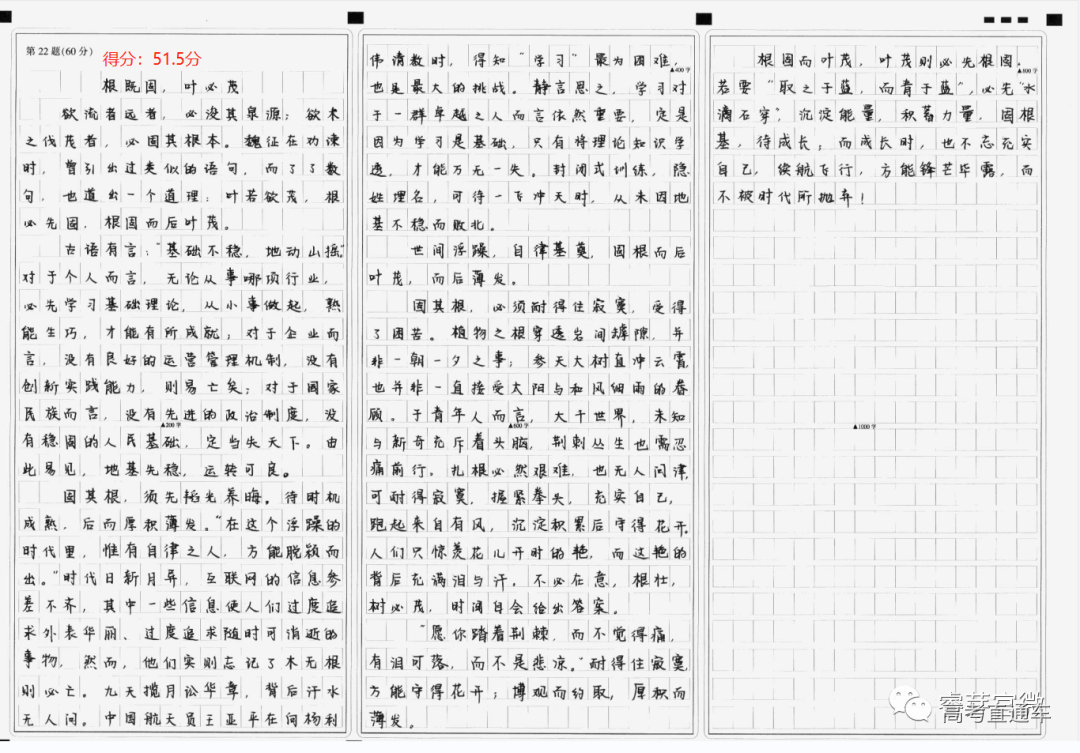 第22题(60分)
得分：51.5分
根既固，叶必茂
欲流者远者，必浚其泉源；欲木
之伐茂者，必固其根本。魏征在劝谏
时，曾引出过类似的语句，而了了数
句，也道出一个道理：叶若欲茂，根
必先固，根固而后叶茂。
古语有言："基础不稳，地动山摇"
对于个人而言，无论从事哪项行业，
必先学习基础理论，从小事做起，熟
能生巧，才能有所成就；对于企业而
言，没有良好的运营管理机制，没有
创新实践能力，则易亡矣；对于国家
民族而言，没有先进的政治制度，没
▲200字
有稳固的人民基础，定当失天下。由
此易见，地基先稳，运转可良。
固其根，须先韬光养晦。待时机
成熟，后而厚积薄发。"在这个浮躁的
时代里，惟有自律之人，方能脱颖而
出。"时代日新月异，互联网的信息参
差不齐，其中一些信息使人们过度追
求外表华丽、过度追求随时可消逝的
事物，然而，他们实则忘记了木无根
则必亡。九天揽月讼华章，背后汗水
无人问。中国航天员王亚平在问杨利
伟请教时，得知"学习"最为困难，
▲400字
也是最大的挑战。静言思之，学习对
于一群卓越之人而言依然重要，定是
因为学习是基础，只有将理论知识学
透，才能万无一失。封闭式训练，隐
姓埋名，可待一飞冲天时，从未因地
基不稳而败北。
世间浮躁，自律基奠，固根而后
叶茂，而后薄发。
固其根，必须耐得住寂寞，受得
了困苦。植物之根穿透岩间罅隙，并
非一朝一夕之事；参天大树直冲云霄，
也并非一直接受太阳与和风细雨的眷
顾。于青年人而言，大千世界，未知
▲600字
与新奇充斥着头脑，荆刺丛生也需忍
痛前行。扎根必然艰难，也无人问津，
可耐得寂寞，握紧拳头，充实自己，
跑起来自有风，沉淀积累后守得花开。
人们只惊羡花儿开时的艳，而这艳的
背后充满泪与汗。不必在意，根壮，
树必茂，时间自会给出答案。
"愿你踏着荆棘，而不觉得痛，
有泪可落，而不是悲凉。"耐得住寂寞
方能守得花开；博观而约取，厚积而
薄发。
根固而叶茂，叶茂则必先根固。
▲800字
若要"取之于蓝，而青于蓝"，必先"水
滴石穿"，沉淀能量，积蓄力量，固根
基，待成长；而成长时，也不忘充实
自己，续航飞行，方能锋芒毕露，而
不被时代所抛弃！
▲1000字
高考直通车